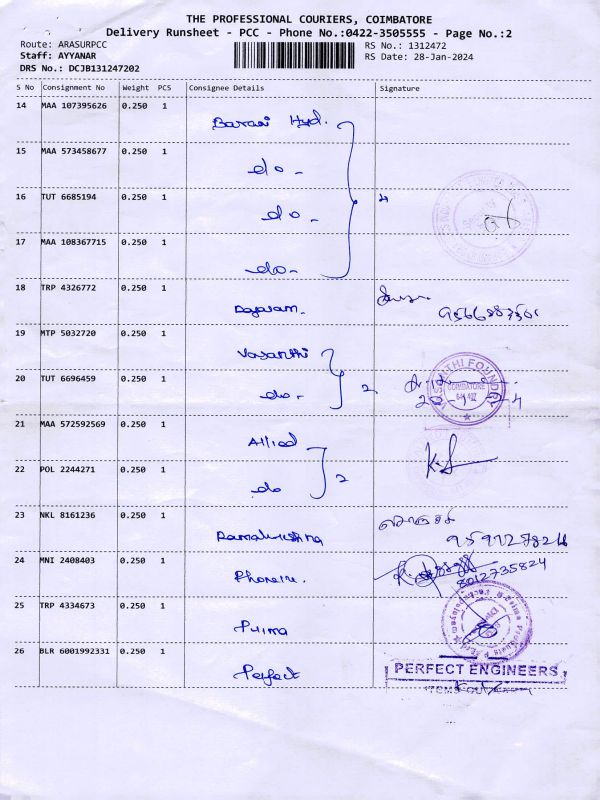 THE PROFESSIONAL COURIERS, COIMBATORE
Delivery Runsheet - PCC - Phone No.:0422-3505555 - Page No.:2
Route: ARASURPCC
RS No.: 1312472
Staff: AYYANAR
RS Date: 28-Jan-2024
DRS No.: DCJB131247202
S No Consignment No Weight PCS Consignee Details Signature
14 MAA 107395626 0.250 1 Barani Hyd.
15 MAA 573458677 0.250 1 do -
16 TUT 6685194 0.250 1 do - 4
17 MAA 108367715 0.250 1 do -
18 TRP 4326772 0.250 1 Rajaram.
19 MTP 5032720 0.250 1 Vasanthi
VASANTHI FOUNDRY
COIMBATORE
641 407
20 TUT 6696459 0.250 1 do - 2
21 MAA 572592569 0.250 1 Allied
22 POL 2244271 0.250 1 do 2
K.S
23 NKL 8161236 0.250 1 Ramakrishna
24 MNI 2408403 0.250 1 Phoenix.
8012735824
25 TRP 4334673 0.250 1 Prima
26 BLR 6001992331 0.250 1 Perfect
PERFECT ENGINEERS